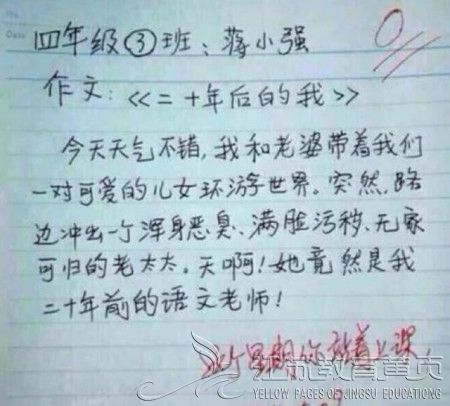 Date
四年级③班：蒋小强
0
作文：《二十年后的我》
今天天气不错，我和老婆带着我们
一对可爱的儿女环游世界。突然，路
边冲出一个浑身恶臭、满脸污秽、无家
可归的老太太。天啊！她竟然是我
二十年前的语文老师！
这个星期你站着上课
江苏教育黄页
YELLOW PAGES OF JINGSU EDUCATIONG